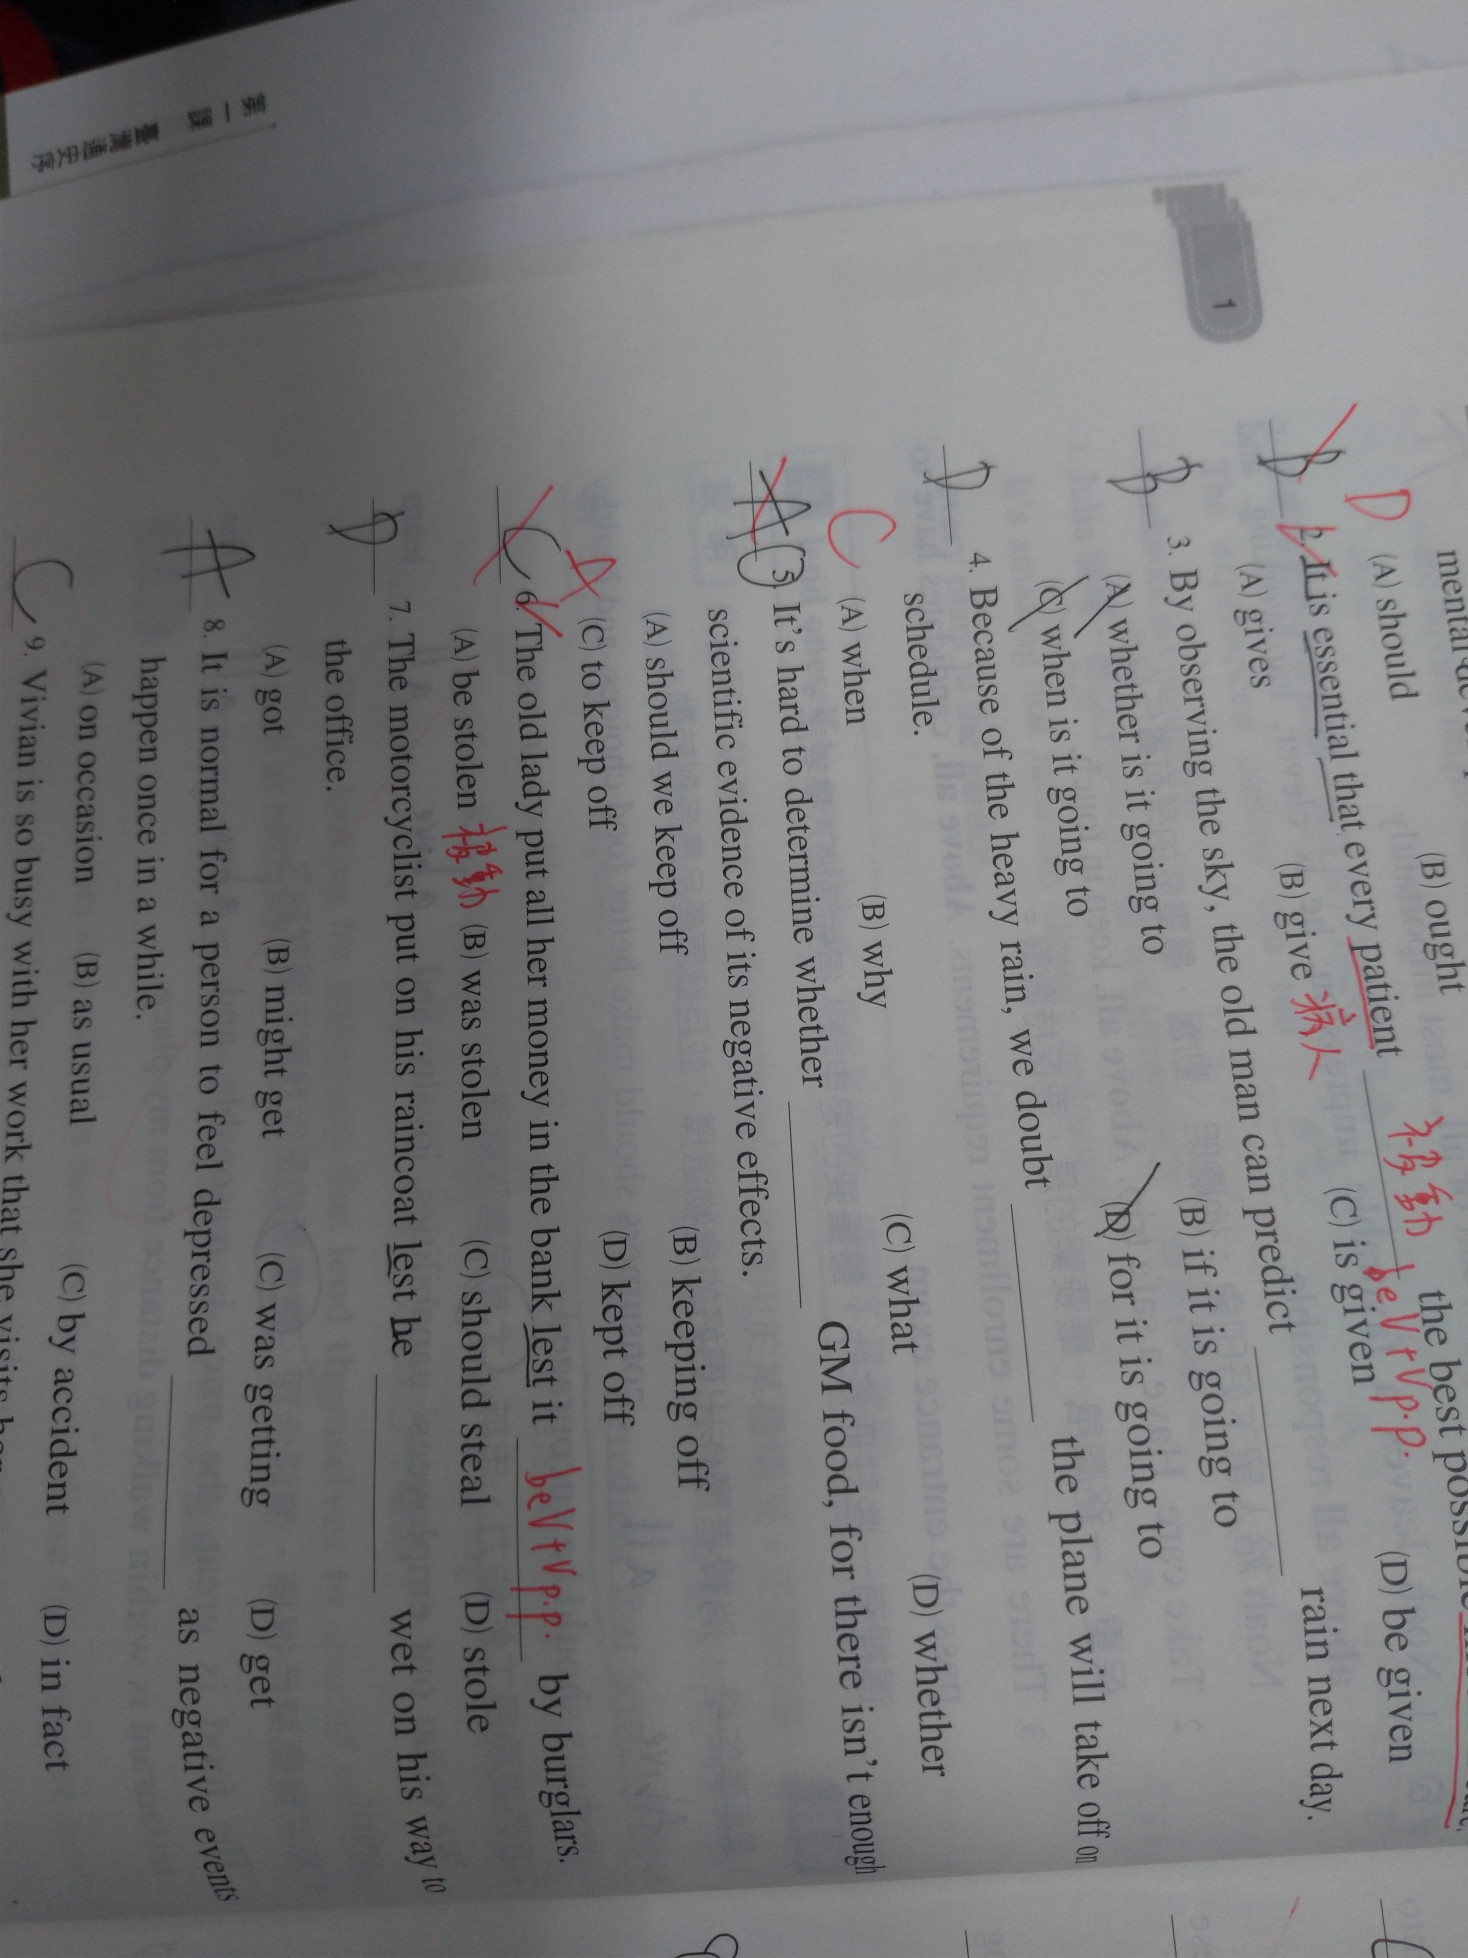 (B) ought
(A) should
D
B 2. It is essential that every patient ______ the best
被動 be V + Vp.p.
(A) gives (B) give 病人 (C) is given (D) be given
B 3. By observing the sky, the old man can predict ______ rain next day.
(A) whether is it going to (B) if it is going to
(C) when is it going to (D) for it is going to
D 4. Because of the heavy rain, we doubt ______ the plane will take off on
schedule.
(A) when (B) why (C) what (D) whether
C
A 5. It's hard to determine whether ______ GM food, for there isn't enough
scientific evidence of its negative effects.
(A) should we keep off (B) keeping off
(C) to keep off (D) kept off
A
C 6. The old lady put all her money in the bank lest it ______ by burglars.
be V + Vp.p.
(A) be stolen 被動 (B) was stolen (C) should steal (D) stole
D 7. The motorcyclist put on his raincoat lest he ______ wet on his way to
the office.
(A) got (B) might get (C) was getting (D) get
A 8. It is normal for a person to feel depressed ______ as negative events
happen once in a while.
(A) on occasion (B) as usual (C) by accident (D) in fact
C 9. Vivian is so busy with her work that she visits her
1
第一課 臺灣通史序